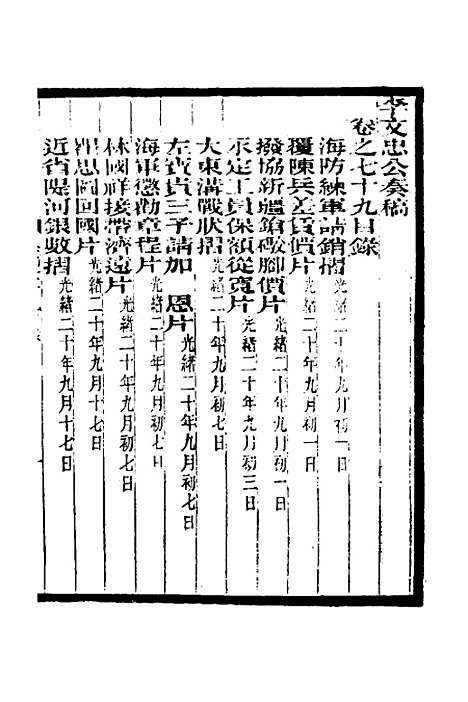 李文忠公奏稿
卷之七十九目錄
海防練軍請銷摺 光緒二十年九月初一日
覆陳兵差賃價片 光緒二十年九月初一日
撥協新疆鎗礮腳價片 光緒二十年九月初一日
永定工員保額從寬片 光緒二十年九月初三日
大東溝戰狀摺 光緒二十年九月初七日
左寶貴三子請加 恩片 光緒二十年九月初七日
海軍懲勸章程片 光緒二十年九月初七日
林國祥接帶濟遠片 光緒二十年九月初七日
思回國片 光緒二十年九月十七日
近省隄河銀數摺 光緒二十年九月十七日